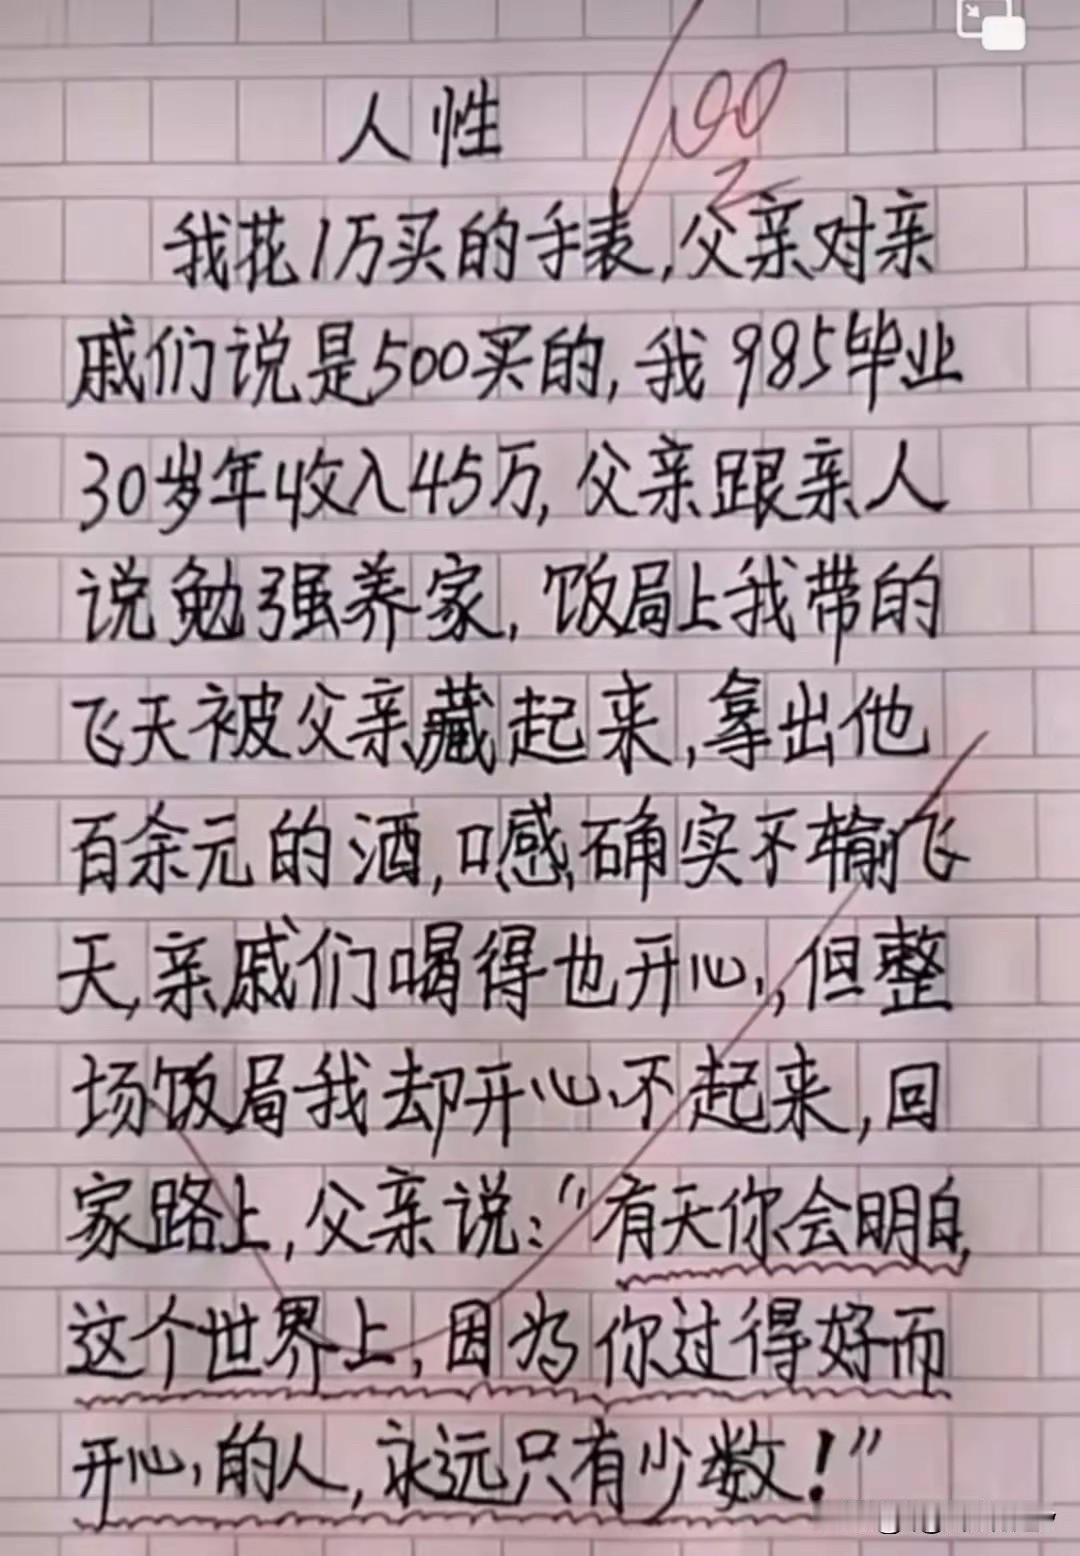 人性
100
我花1万买的手表,父亲对亲
戚们说是500买的,我985毕业
30岁年收入45万,父亲跟亲人
说勉强养家,饭局上我带的
飞天被父亲藏起来,拿出他
百余元的酒,口感确实不输飞
天,亲戚们喝得也开心,但整
场饭局我却开心不起来,回
家路上,父亲说:“有天你会明白,
这个世界上,因为你过得好而
开心的人,永远只有少数!”